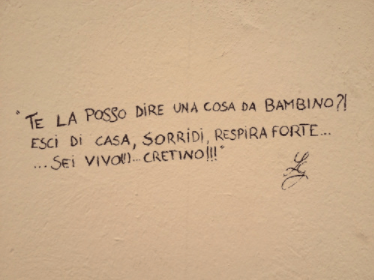 "TE LA POSSO DIRE UNA COSA DA BAMBINO?!
ESCI DI CASA, SORRIDI, RESPIRA FORTE...
...SEI VIVO(!)...CRETINO!!!"